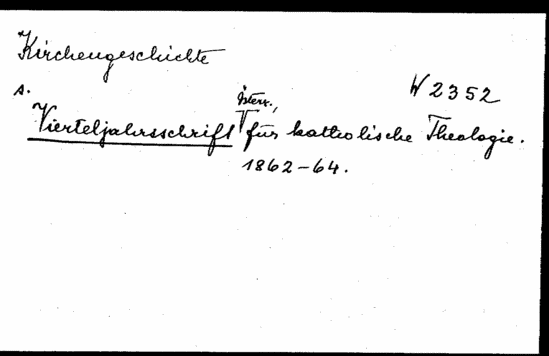 Kirchengeschichte
A. W 2352
österr.,
Vierteljahrsschrift für katholische Theologie.
1862-64.